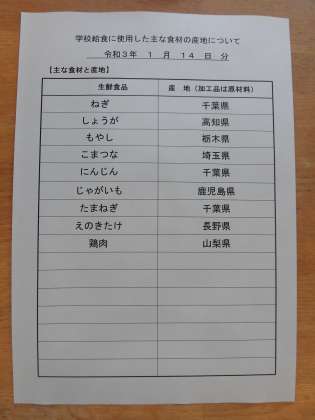 学校給食に使用した主な食材の産地について
令和3年 1 月 14 日 分
【主な食材と産地】
生鮮食品 産 地（加工品は原材料）
ねぎ 千葉県
しょうが 高知県
もやし 栃木県
こまつな 埼玉県
にんじん 千葉県
じゃがいも 鹿児島県
たまねぎ 千葉県
えのきたけ 長野県
鶏肉 山梨県